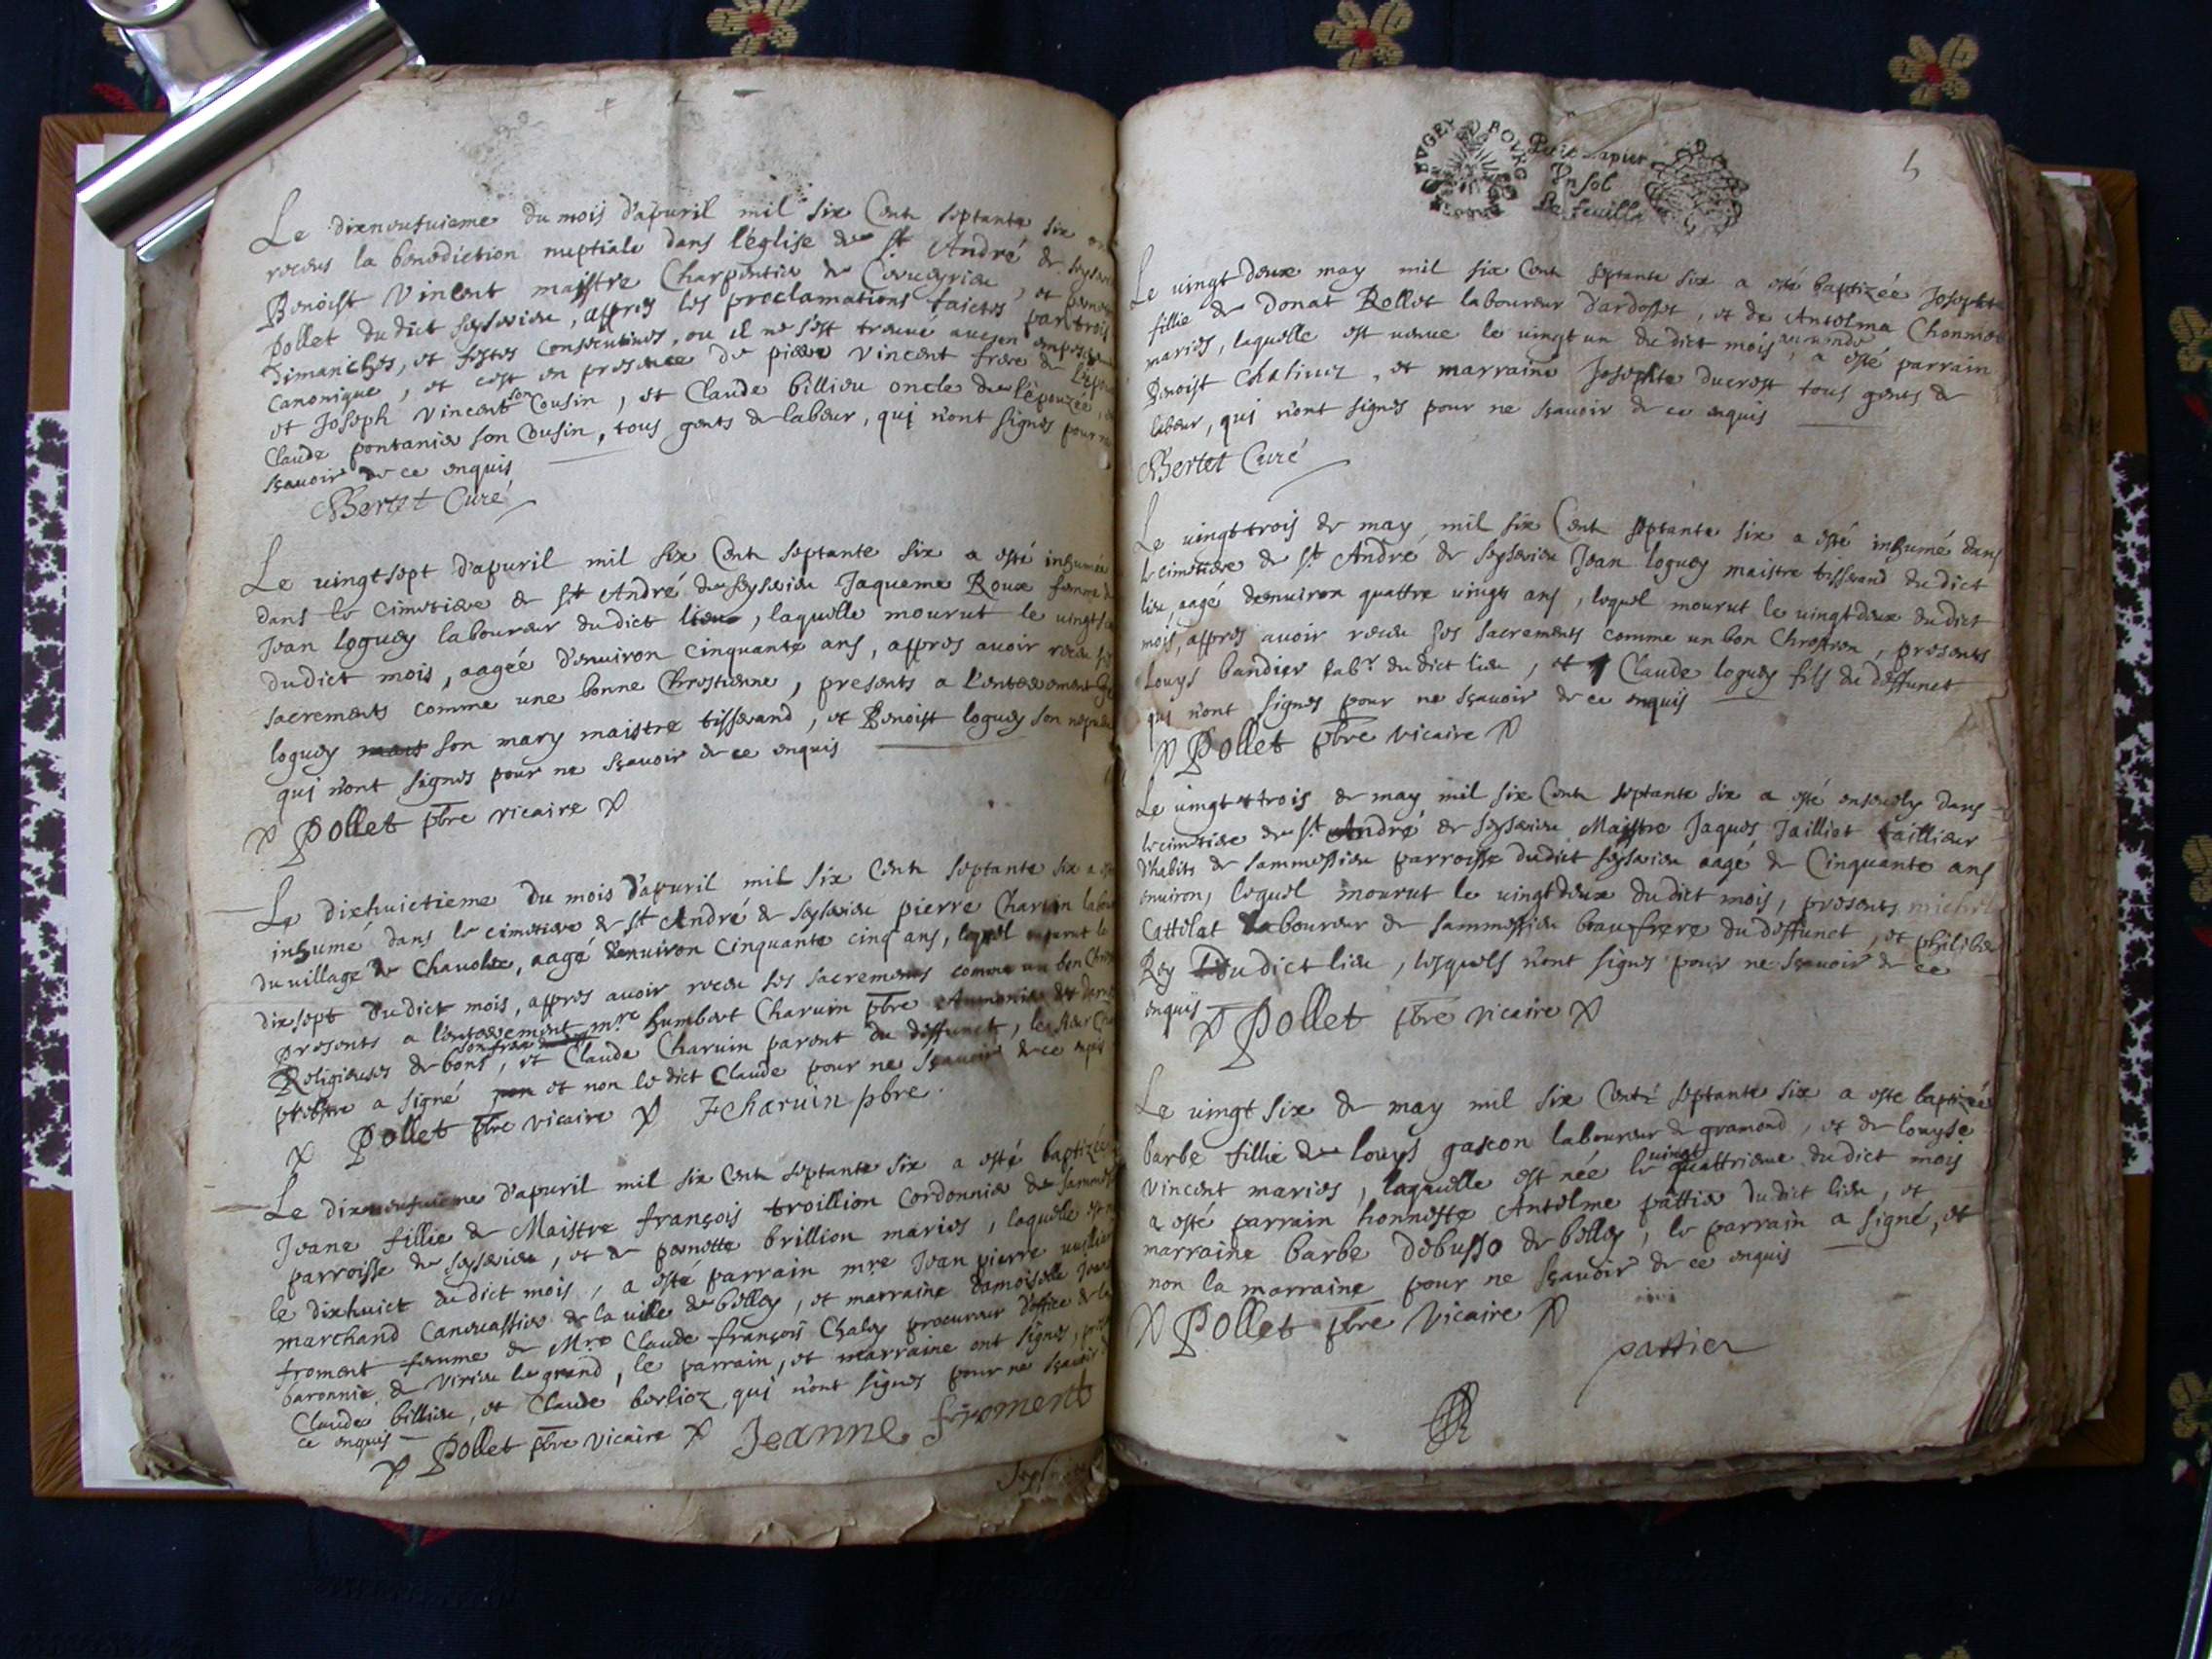 Le dixneufuieme du mois d'apuril mil six Cent septante six ont
receus la benediction nuptiale dans l'église de St André de
Benoist Vincent maistre Charpentier de Ceueyrieu, et pernette
pollet du dict seyssieu, appres les proclamations faictes par trois
dimanches, et festes consecutiues, ou il ne s'est trouué aucun
canonique, et c'est en presence de pierre Vincent frere de
et Joseph Vincent son Cousin, et Claude billieu oncle de l'epouzée,
Claude pontanier son Cousin, tous gents de labeur, qui n'ont signes pour ne
sçauoir de ce enquis
Bertet Curé
Le uingt sept d'apuril mil six Cent septante six a esté inhumée
dans le cimetiere de St André de seyssieu Jaqueme Roux femme de
Jean loguey laboureur du dict lieu, laquelle mourut le
du dict mois, aagée d'enuiron cinquante ans, appres auoir receu
sacrements comme une bonne Chrestienne, presents a l'enterrement
loguey son mary maistre tisserand, et Benoist loguey son nepueu
qui n'ont signes pour ne sçauoir de ce enquis
Pollet pbre vicaire
Le dixhuictieme du mois d'apuril mil six Cent septante six a
inhumé dans le cimetiere de St André de seyssieu pierre Charuin
du village de Chauolee, aagé d'enuiron cinquante cinq ans, lequel mourut le
dix sept du dict mois, appres auoir receu ses sacrements comme un bon
presents a l'enterrement mre humbert Charuin pbre Aumonier des
Religieuses de bons, son frere, et Claude Charuin parent du deffunct, le
prebstre a signé et non le dict Claude pour ne sçauoir de ce enquis
Pollet pbre vicaire Charuin pbre
Le dixneufuieme d'apuril mil six Cent septante six a esté baptizée
Jeane fillie de Maistre françois troillion Cordonnier de
parroisse de seyssieu, et de pernette brillion maries, laquelle
le dixhuict du dict mois, a esté parrain mre Jean pierre
marchand Caneuassier de la uille de belley, et marraine damoiselle
froment femme de Mre Claude françois Chaley procureur d'office de la
baronnie de Virieu le grand, le parrain, et marraine ont signes,
Claude billieu, et Claude berlioz qui n'ont signes pour ne sçauoir
ce enquis
Pollet pbre vicaire Jeanne froment
BVGEY BOVRG
Petit papier
Vn sol
La feuille
5
Le uingt deux may mil six Cent septante six a esté baptizée Josephte
fillie de Donat Rollet laboureur d'ardosset, et de Antelma
maries, laquelle est uenue le uingt un du dict mois au monde, a esté parrain
Benoist Chaliuez, et marraine Josephte ducrest tous gents de
labeur, qui n'ont signes pour ne sçauoir de ce enquis
Bertet Curé
Le uingt trois de may mil six Cent septante six a esté inhumé dans
le cimetiere de St André de seyssieu Jean loguey maistre tisserand du dict
lieu, aagé d'enuiron quattre uingt ans, lequel mourut le uingt deux du dict
mois, appres auoir receu ses sacrements comme un bon Chrestien, presents
Louys bandier labr du dict lieu, et Claude loguey fils du deffunct
qui n'ont signes pour ne sçauoir de ce enquis
Pollet pbre vicaire
Le uingt trois de may mil six Cent septante six a esté enseuely dans
le cimetiere de St André de seyssieu Maistre Jaques Jailliet taillieur
d'habits de sammessieu parroisse du dict seyssieu aagé de Cinquante ans
enuiron, lequel mourut le uingt deux du dict mois, presents michel
Cattelat laboureur de sammessieu beaufrere du deffunct, et philiber
Rey du dict lieu, lesquels n'ont signes pour ne sçauoir de ce
enquis Pollet pbre vicaire
Le uingt six de may mil six Cent septante six a esté baptizée
barbe fillie de louys gascon laboureur de gramond, et de louyse
Vincent maries, laquelle est née le uingt quattrieme du dict mois
a esté parrain honneste Antelme pattier du dict lieu, et
marraine barbe debusso de belley, le parrain a signé, et
non la marraine pour ne sçauoir de ce enquis
Pollet pbre Vicaire
pattier